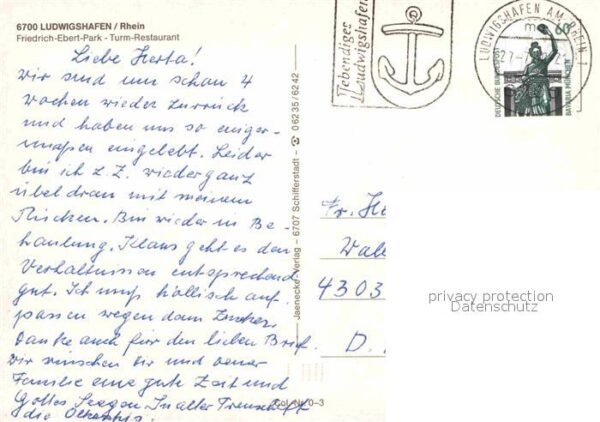 6700 LUDWIGSHAFEN / Rhein
Friedrich-Ebert-Park - Turm-Restaurant
Liebe Herta!
wir sind nun schon 4
Wochen wieder zurück
und haben uns so einiger-
maßen eingelebt. Leider
bin ich z. Z. wieder ganz
übel dran mit meinem
Rücken. Bin wieder in Be-
handlung. Klaus geht es den
Verhältnissen entsprechend
gut. Ich muß höllisch auf-
passen wegen dem Zucker.
Danke auch für den lieben Brief.
wir wünschen dir und deiner
Familie eine gute Zeit und
Gottes Segen. In alter Freundschaft
die
Jaenecke-Verlag - 6707 Schifferstadt - 06235/6242
Col.-Nr. 0-3
Lebendiges
Ludwigshafen
LUDWIGSHAFEN AM RHEIN 1
60
DEUTSCHE BUNDESPOST
BAVARIA MÜNCHEN
Fr. He
4303
D.
privacy protection
Datenschutz